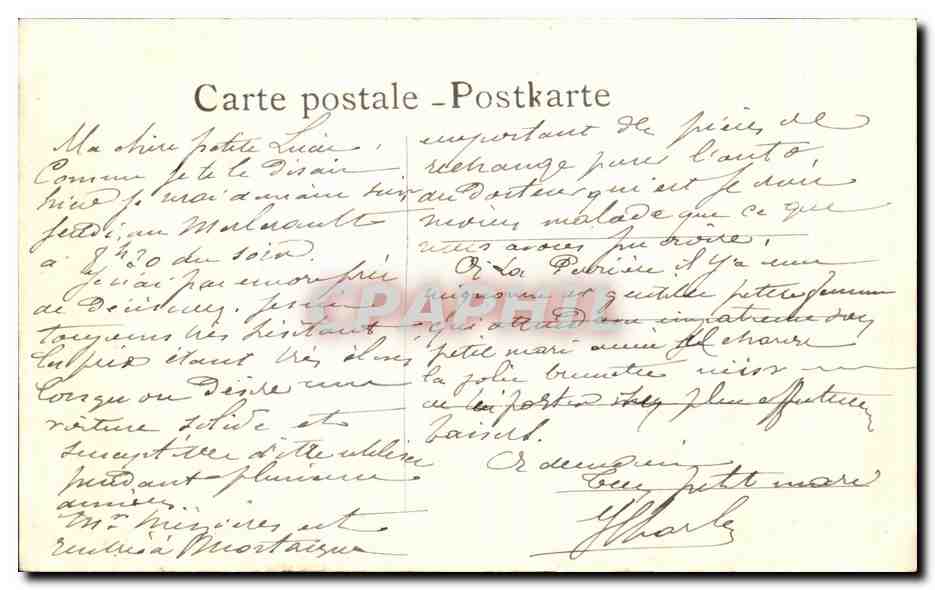 Carte postale - Postkarte
Ma chère petite
Comme je te le disais
hier je irai demain soir
jeudi, au Merlerault
à 8h30 du soir.
Je n'ai pas encore pris
de Décision, je suis
toujours très hésitant
les prix étant très élevés
lorsqu'on Désire une
voiture solide et
susceptible d'être utilisée
pendant plusieurs
années
Mr Mézières est
rentré à Mortagne
important de pièces de
rechange pour l'auto,
du Docteur qui est je crois
moins malade que ce que
nous avons pu croire.
À La Perrière il y a une
mignonne et gentille petite femme
qui attend son
petit mari
la jolie brunette
de plus affectueux
baisers.
À demain
Ton petit mari
Charles
CPAPHIL